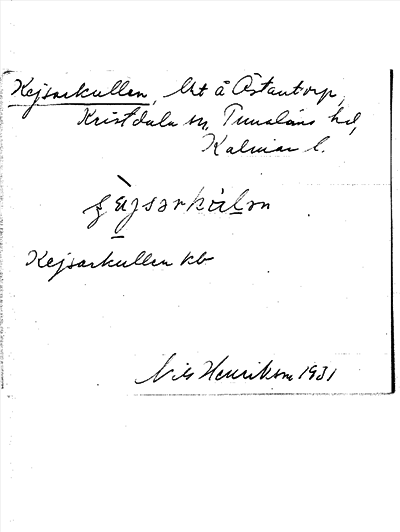 Kejsarkullen, lht å Åstantorp,
Kristdala sn, Tunaläns hd,
Kalmar l.
Kejsarkullen kb
Nils Henrikson 1931